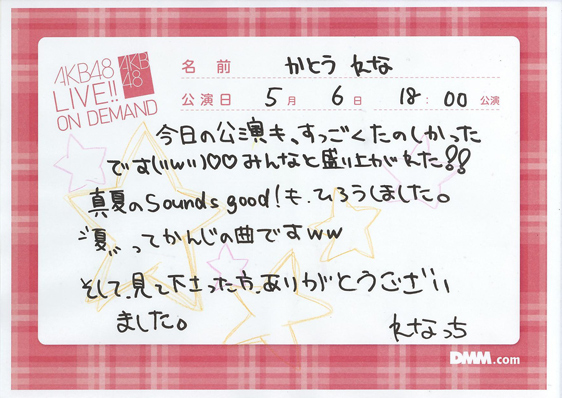 AKB48
LIVE!!
ON DEMAND
AKB
48
名 前 かとう れな
公演日 5月 6日 18:00 公演
今日の公演も、すっごくたのしかった
です(\\w\\)♡♡みんなと盛り上がれた!!
真夏のSounds good!も、ひろうしました。
"夏"ってかんじの曲ですww
そして、見て下さった方、ありがとうござい
ました。
れなっち
DMM.com